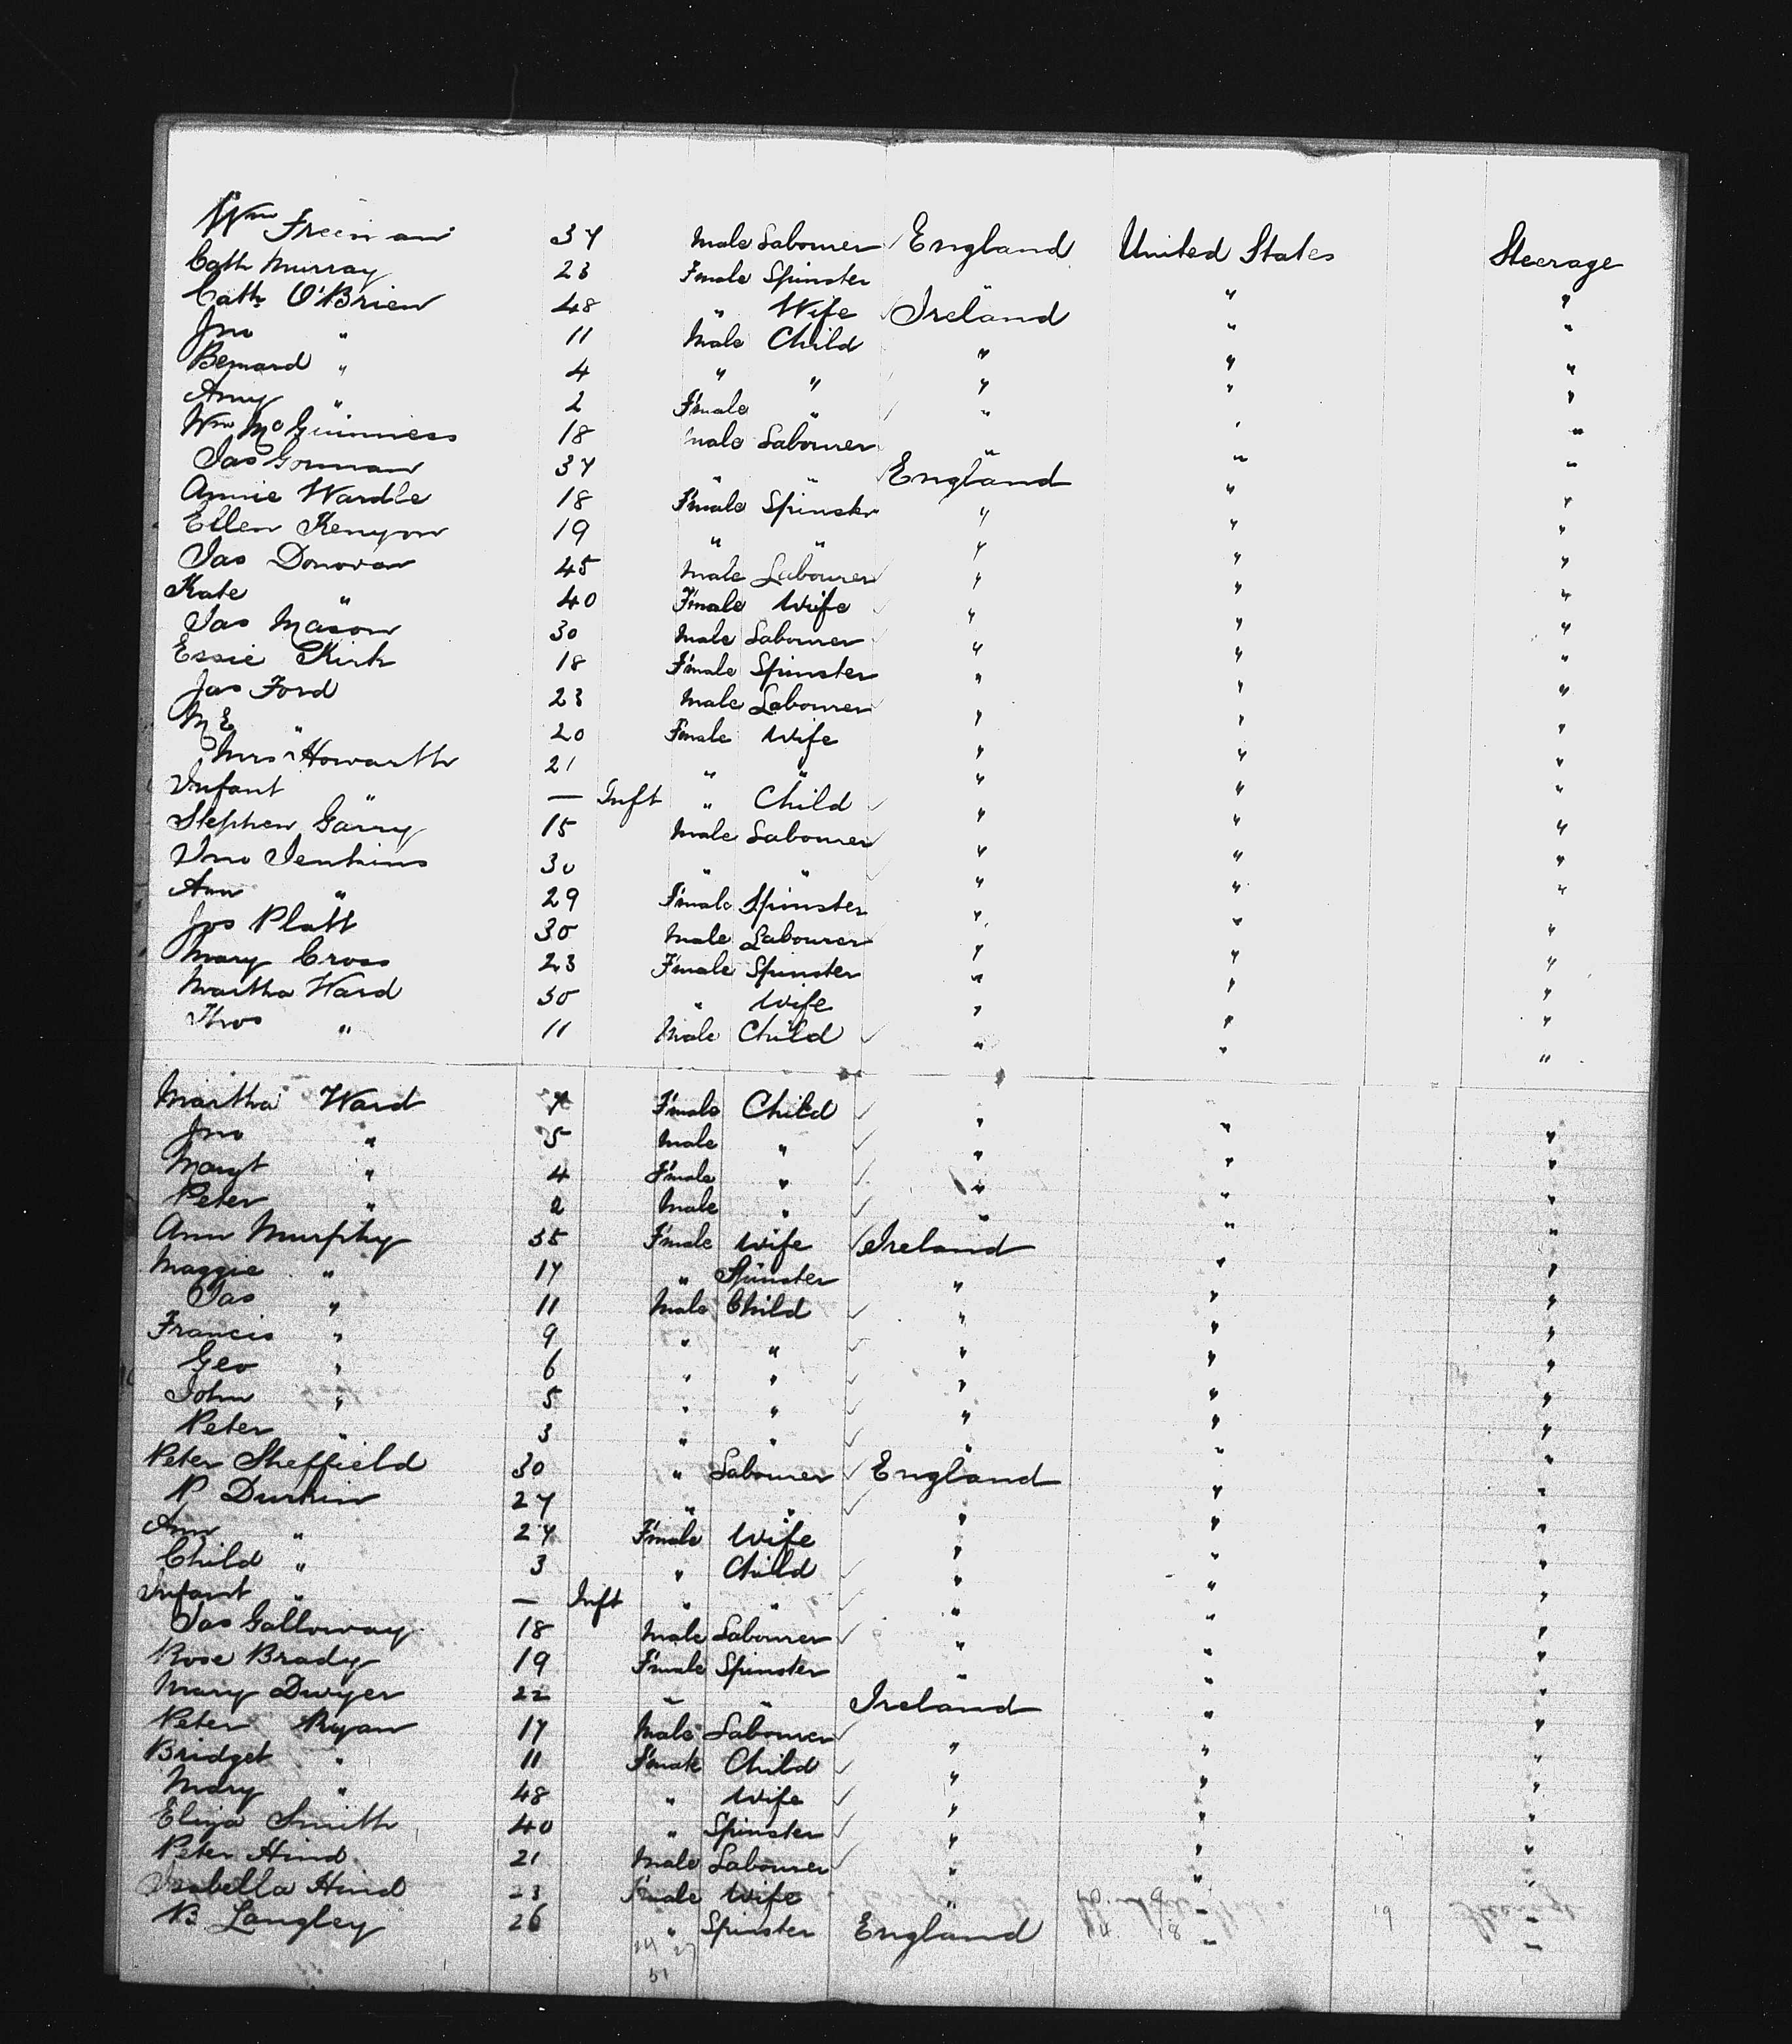 Wm Freeman 37 Male Labourer England United States Steerage
Cath Murray 23 F'male Spinster " " "
Cath O'Brien 48 " Wife Ireland " "
Jno " 11 Male Child " " "
Bernard " 4 " " " " "
Amy " 2 F'male " " " "
Wm McGuinness 18 Male Labourer " " "
Jas Gorman 37 " " England " "
Annie Wardle 18 F'male Spinster " " "
Ellen Kenyon 19 " " " " "
Jas Donovan 45 Male Labourer " " "
Kate " 40 F'male Wife " " "
Jas Mason 30 Male Labourer " " "
Essie Kirk 18 F'male Spinster " " "
Jas Ford 23 Male Labourer " " "
M E " 20 F'male Wife " " "
Mrs Howarth 21 " " " " "
Infant " — Inft " Child " " "
Stephen Garry 15 Male Labourer " " "
Jno Jenkins 30 " " " " "
Ann " 29 F'male Spinster " " "
Jos Platt 30 Male Labourer " " "
Mary Cross 23 F'male Spinster " " "
Martha Ward 30 " Wife " " "
Thos " 11 Male Child " " "
Martha Ward 7 F'male Child " " "
Jno " 5 Male " " " "
Margt " 4 F'male " " " "
Peter " 2 Male " " " "
Ann Murphy 35 F'male Wife Ireland " "
Maggie " 17 " Spinster " " "
Jas " 11 Male Child " " "
Francis " 9 " " " " "
Geo " 6 " " " " "
John " 5 " " " " "
Peter " 3 " " " " "
Peter Sheffield 30 " Labourer England " "
P Durkin 27 " " " " "
Ann " 27 F'male Wife " " "
Child " 3 " Child " " "
Infant " — Inft " " " " "
Jas Galloway 18 Male Labourer " " "
Rose Brady 19 F'male Spinster " " "
Mary Dwyer 22 " " Ireland " "
Peter Ryan 17 Male Labourer " " "
Bridget " 11 F'male Child " " "
Mary " 48 " Wife " " "
Eliza Smith 40 " Spinster " " "
Peter Hind 21 Male Labourer " " "
Isabella Hind 23 F'male Wife " "
B Langley 26 " Spinster England " "
24 27
51